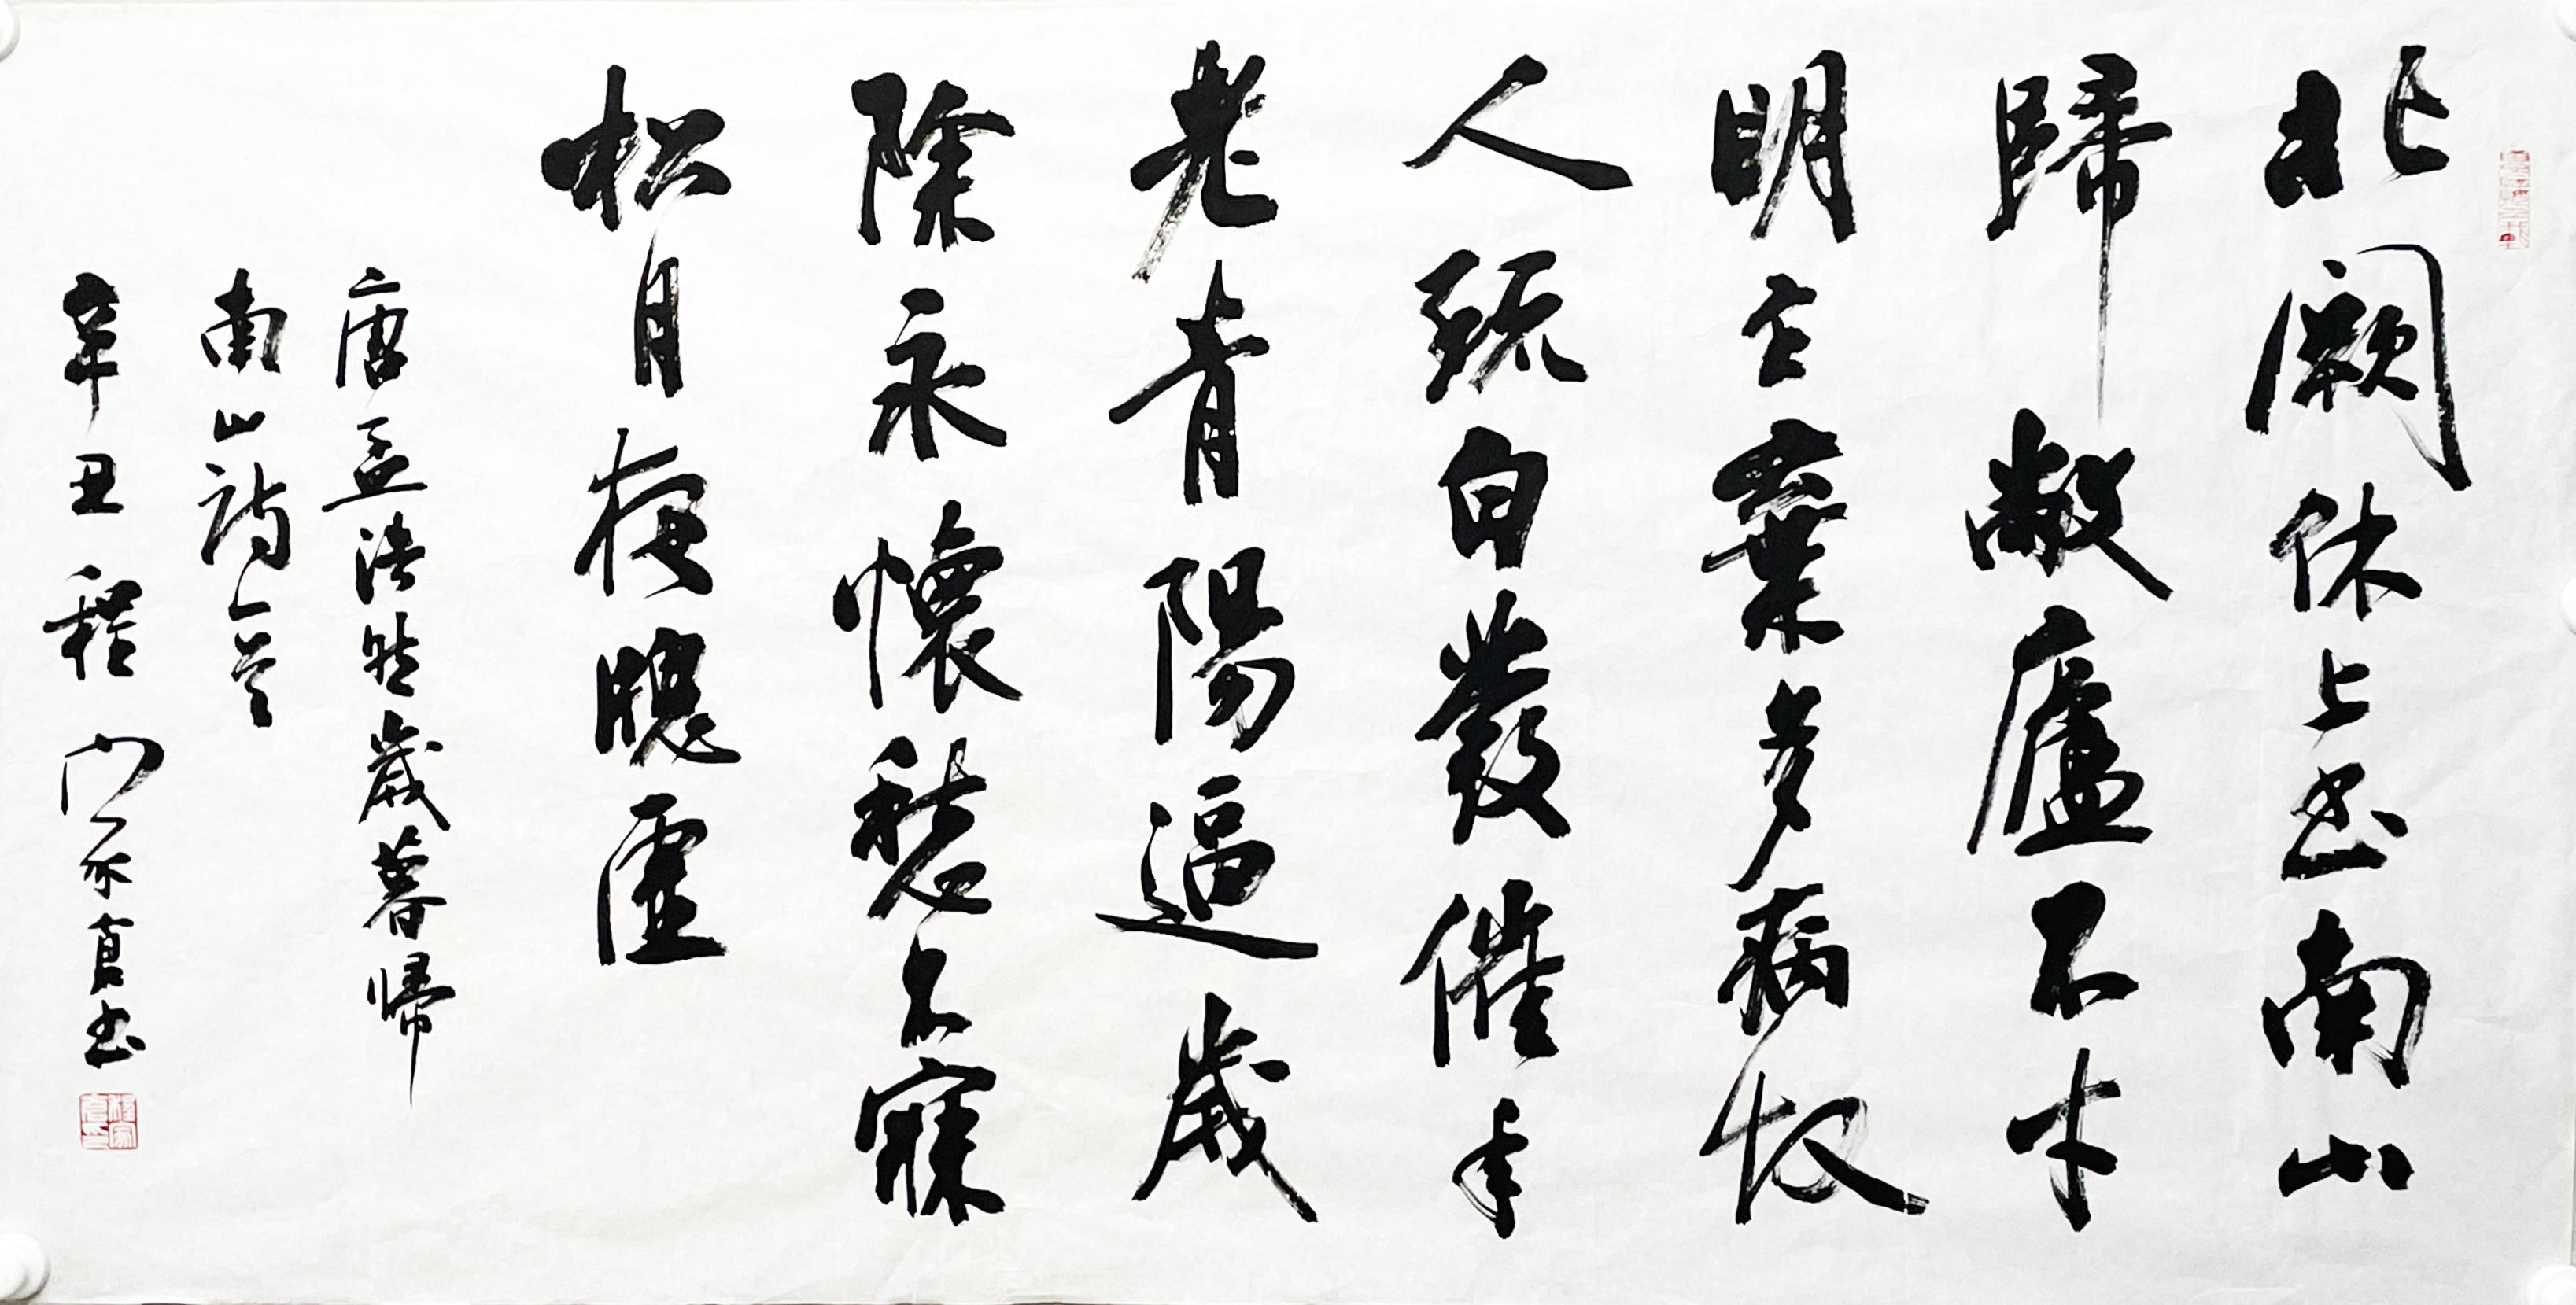 北闕休上书南山
歸敝廬不才
明主棄多病故
人疏白發催年
老青陽逼歲
除永懷愁不寐
松月夜牕虛
唐孟浩然歲暮歸
南山詩一首
辛丑程家书